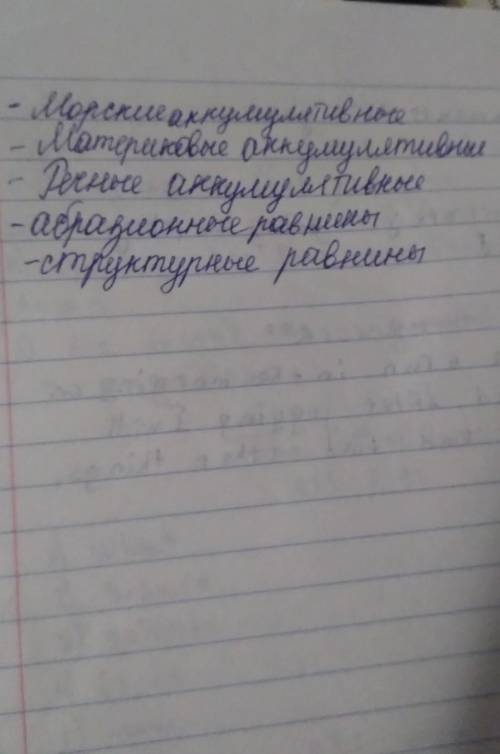 - Морские аккумулятивные
- Материковые аккумулятивные
- Речные аккумулятивные
- абразионные равнины
- структурные равнины